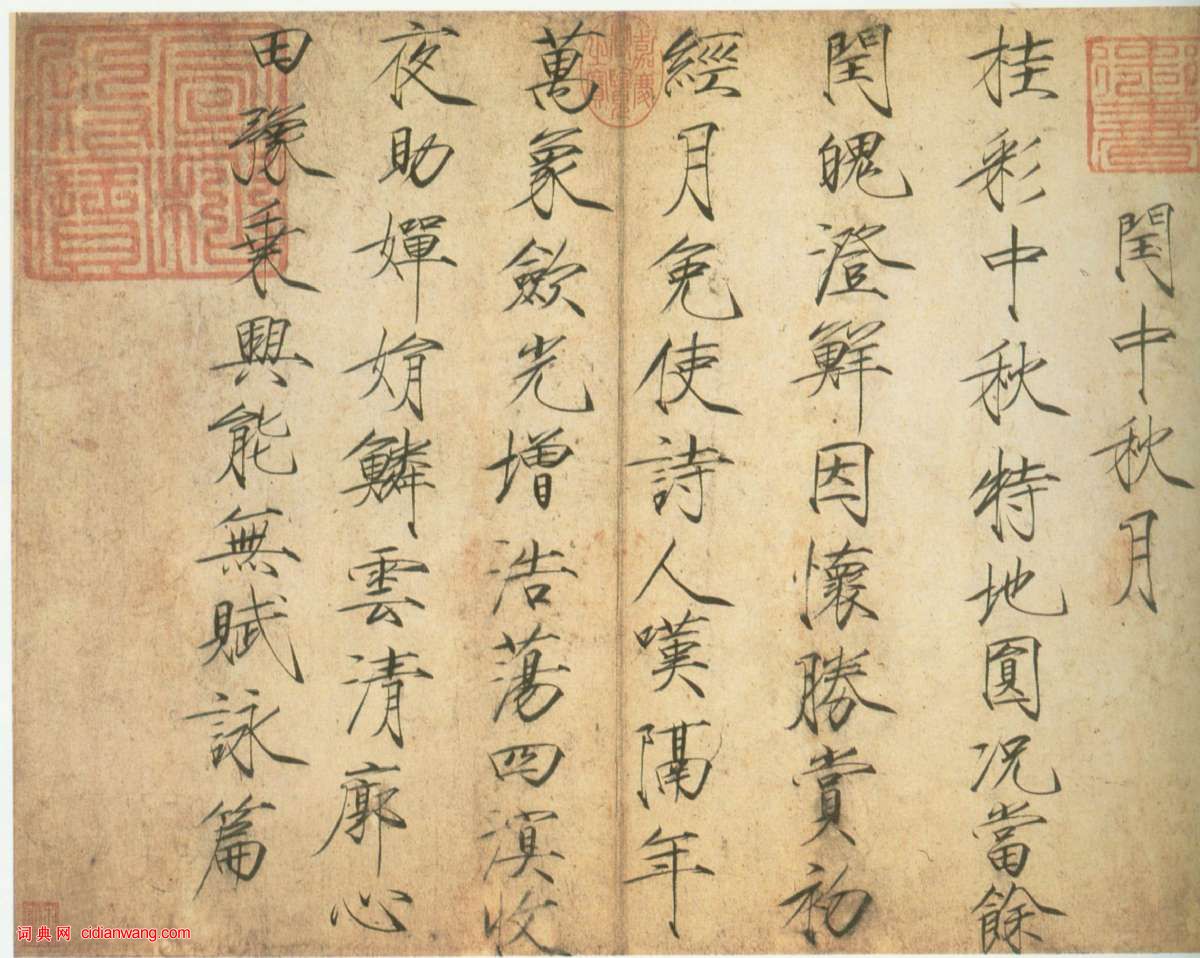 閏中秋月
桂彩中秋特地圓況當餘
閏魄澄鮮因懷勝賞初
經月免使詩人嘆隔年
萬象歛光增浩蕩四溟收
夜助嬋娟鱗雲清廓心
田豫乘興能無賦詠篇
词典网 cidianwang.com